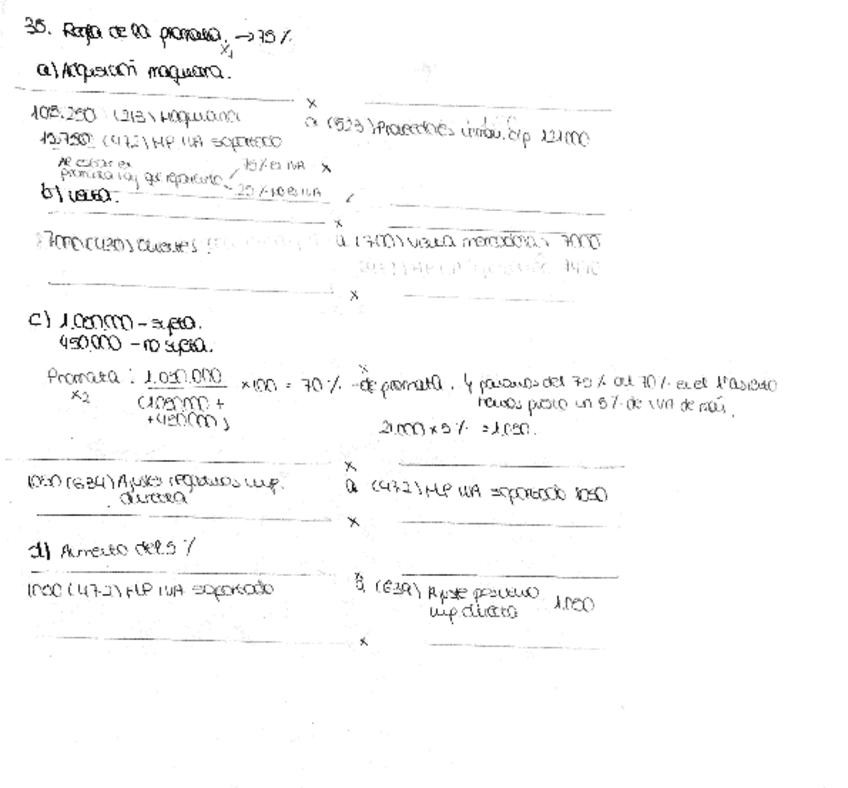 35. Regla de la prorrata. → 75 %
x1
a) Adquisición maquinaria.
x
105.250 (213) Maquinaria
a (523) Proveedores inmov. c/p 121000
15.750 (472) HP IVA soportado
75% es IVA x
prorrata hay que repartirlo
25% no es IVA
b) Venta.
x
7000 (430) Clientes
a (700) Venta mercaderías 7000
x
c) 1.050.000 - sujeta.
450.000 - no sujeta.
x
Prorrata: 1.050.000 x100 = 70 % de prorrata. Y pasamos del 75 % al 70 % en el 1º asiento
x2
(1.050.000 +
hemos puesto un 5 % de IVA de más.
+ 450.000)
21.000 x 5 % = 1.050.
x
1050 (634) Ajustes negativos imp.
directa
a (472) HP IVA soportado 1050
x
d) Aumento del 5 %
1050 (472) HP IVA soportado
a (639) Ajuste positivo
imp. directa
1.050
x